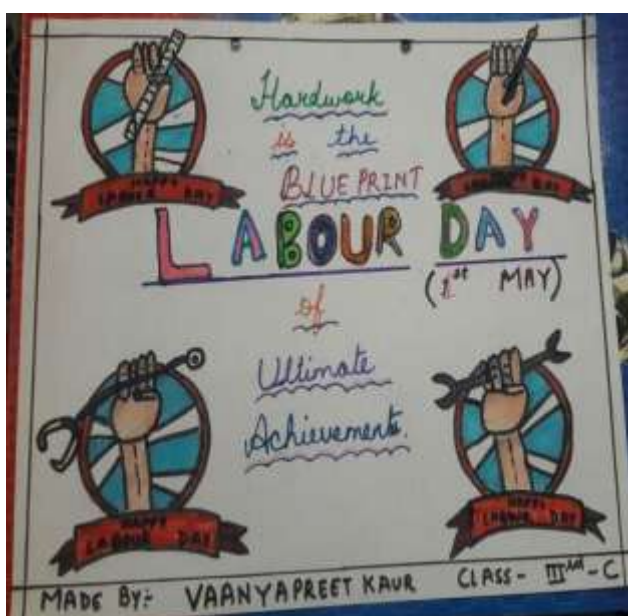 Hardwork
is the
BLUE PRINT
LABOUR DAY
(1st MAY)
of
Ultimate
Achievements.
HAPPY
LABOUR DAY
HAPPY
LABOUR DAY
HAPPY
LABOUR DAY
HAPPY
LABOUR DAY
MADE BY:- VAANYAPREET KAUR CLASS- IIIrd-C